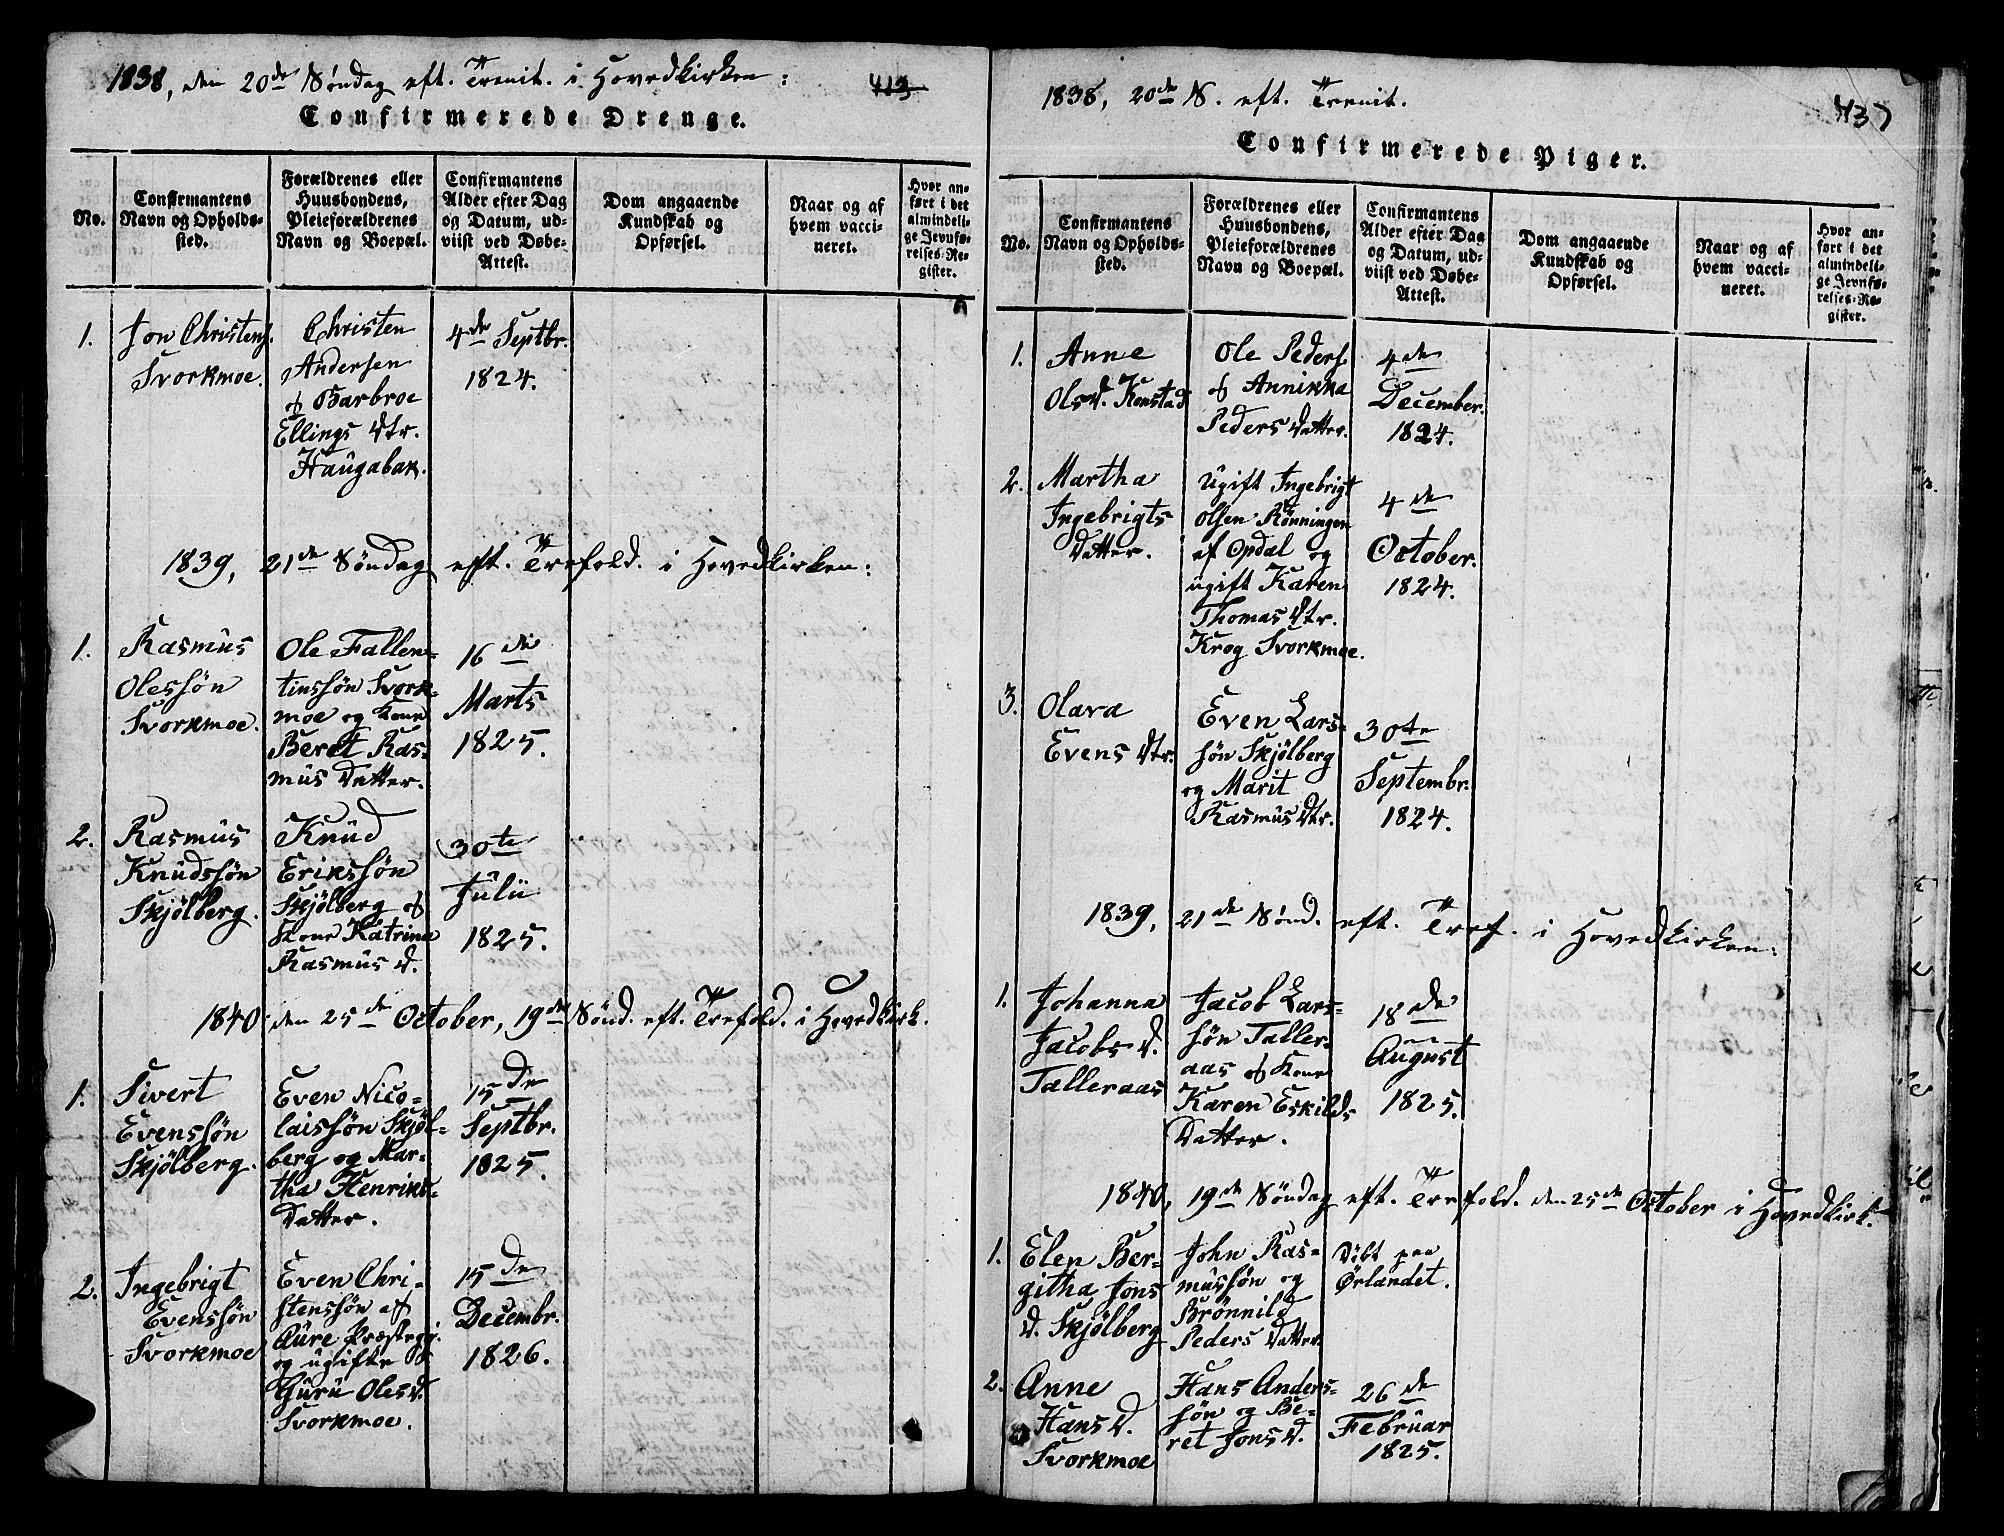 1838, den 20de Søndag eft. Trenit. i Hovedkirken:
413
Confirmerede Drenge.
No.
Confirmantens
Navn og Opholds-
sted.
Forældrenes eller
Huusbondens,
Pleieforældrenes
Navn og Boepæl.
Confirmantens
Alder efter Dag
og Datum, ud-
viist ved Døbe-
Attest.
Dom angaaende
Kundskab og
Opførsel.
Naar og af
hvem vacci-
neret.
Hvor an-
ført i det
almindeli-
ge Jevnfø-
relses-Re-
gister.
1.
Jon Christens.
Svorkmoe.
Christen
Andersen
og Barbroe
Ellings Dtr.
Haugabak.
4de Septbr.
1824.
1839, 21de Søndag eft. Trefold. i Hovedkirken:
1.
Rasmus
Olessøn
Svorkmoe.
Ole Fallen-
tinssøn Svork-
moe og Kone
Beret Ras-
mus Datter.
16de
Marts
1825.
2.
Rasmus
Knudssøn
Skjølberg.
Knud
Erikssøn
Skjølberg og
Kone Katrina
Rasmus D.
30te
Julii
1825.
1840 den 25de October, 19de Sønd. eft. Trefold. i Hovedkirk.
1.
Sivert
Evenssøn
Skjølberg.
Even Nico-
laissøn Skjøl-
berg og Mar-
tha Henriks-
Datter.
15de
Septbr.
1825.
2.
Ingebrigt
Evenssøn
Svorkmoe
Even Chri-
stenssøn af
Aure Præstegj.
og ugifte
Guru Olesd.
Svorkmoe.
15de
Decembr.
1826.
1838, 20de S. eft. Trenit.
437
Confirmerede Piger.
No.
Confirmantens
Navn og Opholds-
sted.
Forældrenes eller
Huusbondens,
Pleieforældrenes
Navn og Boepæl.
Confirmantens
Alder efter Dag
og Datum, ud-
viist ved Døbe-
Attest.
Dom angaaende
Kundskab og
Opførsel.
Naar og af
hvem vacci-
neret.
Hvor an-
ført i det
almindeli-
ge Jevnfø-
relses-Re-
gister.
1.
Anne
Olsd. Konstad
Ole Peders.
og Annikka
Peders Datter.
4de
December.
1824.
2.
Martha
Ingebrigts
Datter.
Ugift Ingebrigt
Olsen Rønningen
af Opdal og
ugift Karen
Thomas Dtr.
Krog Svorkmoe.
4de
October.
1824.
3.
Olava
Evens Dtr.
Even Lars-
søn Skjølberg
og Marit
Rasmus Dtr.
30te
Septembr.
1824.
1839, 21de Sønd. eft. Tref. i Hovedkirken:
1.
Johanna
Jacobs D.
Talleraas
Jacob Lars-
søn Taller-
aas og Kone
Karen Eskilds
Datter.
18de
August
1825.
1840, 19de Søndag eft. Trefold. den 25de October i Hovedkirk.
1.
Elen Ber-
githa Jons
D. Skjølberg
John Ras-
mussøn og
Brønnild
Peders Datter.
Døbt paa
Ørlandet.
2.
Anne
Hans D.
Svorkmoe
Hans Anders-
søn og Be-
ret Jons D.
26de
Februar
1825.